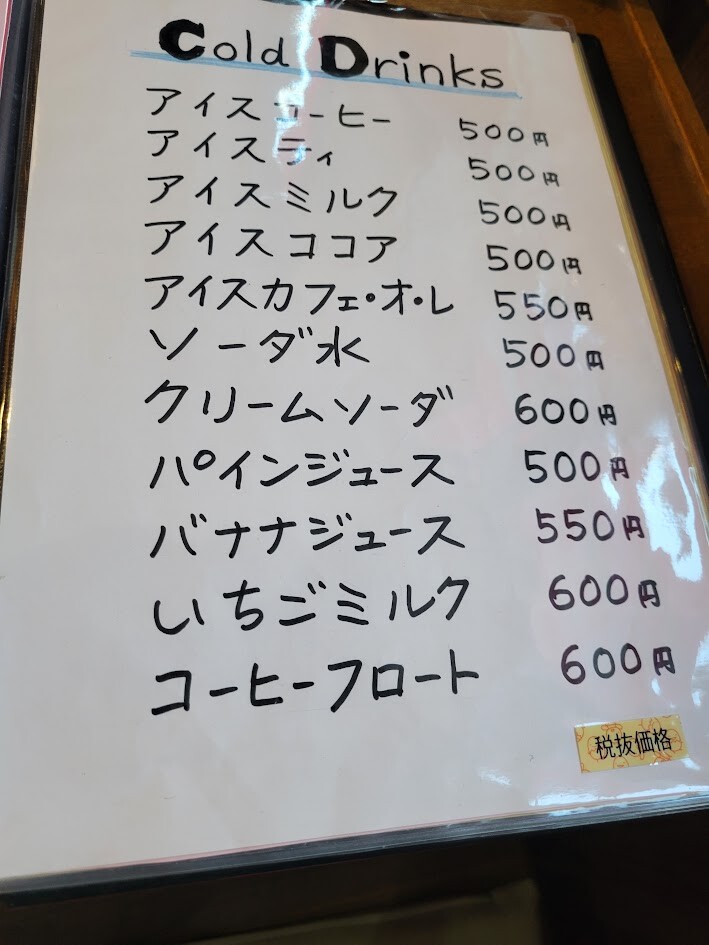 Cold Drinks
アイスコーヒー 500円
アイスティ 500円
アイスミルク 500円
アイスココア 500円
アイスカフェ・オ・レ 550円
ソーダ水 500円
クリームソーダ 600円
パインジュース 500円
バナナジュース 550円
いちごミルク 600円
コーヒーフロート 600円
税抜価格